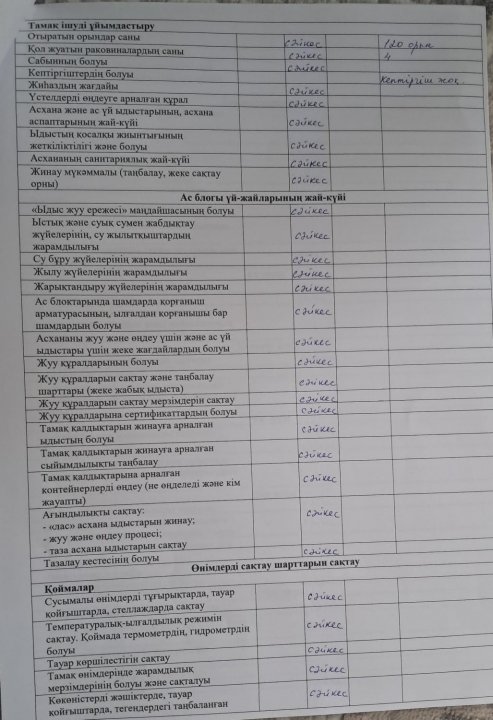 Тамақ ішуді ұйымдастыру
Отыратын орындар саны сәйкес 120 орын
Қол жуатын раковиналардың саны сәйкес 4
Сабынның болуы сәйкес
Кептіргіштердің болуы Кептіргіш жоқ
Жиһаздың жағдайы сәйкес
Үстелдерді өңдеуге арналған құрал сәйкес
Асхана және ас үй ыдыстарының, асхана
аспаптарының жай-күйі сәйкес
Ыдыстың қосалқы жиынтығының
жеткіліктілігі және болуы сәйкес
Асхананың санитариялық жай-күйі сәйкес
Жинау мүкәммалы (таңбалау, жеке сақтау
орны) сәйкес
Ас блогы үй-жайларының жай-күйі
«Ыдыс жуу ережесі» маңдайшасының болуы сәйкес
Ыстық және суық сумен жабдықтау
жүйелерінің, су жылытқыштардың
жарамдылығы сәйкес
Су бұру жүйелерінің жарамдылығы сәйкес
Жылу жүйелерінің жарамдылығы сәйкес
Жарықтандыру жүйелерінің жарамдылығы сәйкес
Ас блоктарында шамдарда қорғаныш
арматурасының, ылғалдан қорғанышы бар
шамдардың болуы сәйкес
Асхананы жуу және өңдеу үшін және ас үй
ыдыстары үшін жеке жағдайлардың болуы сәйкес
Жуу құралдарының болуы сәйкес
Жуу құралдарын сақтау және таңбалау
шарттары (жеке жабық ыдыста) сәйкес
Жуу құралдарын сақтау мерзімдерін сақтау сәйкес
Жуу құралдарына сертификаттардың болуы сәйкес
Тамақ қалдықтарын жинауға арналған
ыдыстың болуы сәйкес
Тамақ қалдықтарын жинауға арналған
сыйымдылықты таңбалау сәйкес
Тамақ қалдықтарына арналған
контейнерлерді өңдеу (не өңделеді және кім
жауапты) сәйкес
Ағындылықты сақтау: сәйкес
- «лас» асхана ыдыстарын жинау;
- жуу және өңдеу процесі;
- таза асхана ыдыстарын сақтау
Тазалау кестесінің болуы
Өнімдерді сақтау шарттарын сақтау
Қоймалар
Сусымалы өнімдерді тұғырықтарда, тауар
қойғыштарда, стеллаждарда сақтау сәйкес
Температуралық-ылғалдылық режимін
сақтау. Қоймада термометрдің, гидрометрдің
болуы сәйкес
Тауар көршілестігін сақтау сәйкес
Тамақ өнімдерінде жарамдылық
мерзімдерінің болуы және сақталуы сәйкес
Көкөністерді жәшіктерде, тауар
қойғыштарда, тегендердегі таңбаланған сәйкес